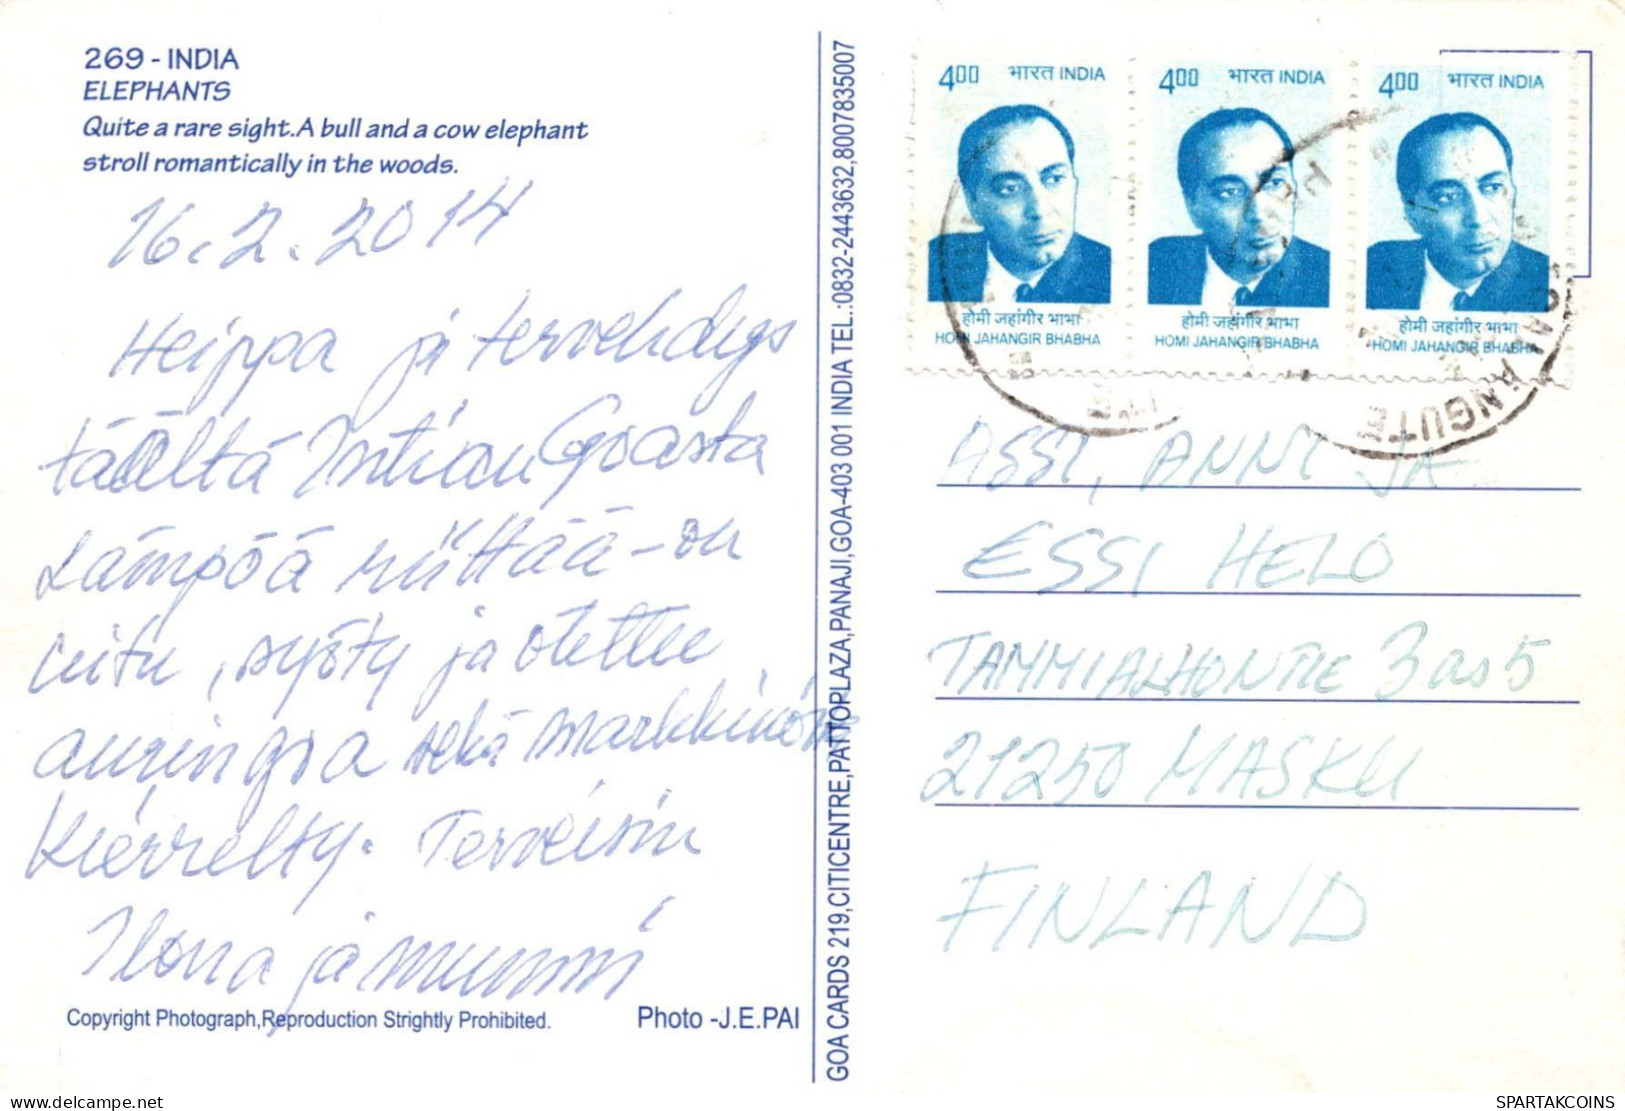 269 - INDIA
ELEPHANTS
Quite a rare sight.A bull and a cow elephant
stroll romantically in the woods.
16.2.2014
Heippa ja tervehdys
täältä Intian Goasta
Lämpöä riittää - on
uitu, syöty ja otettu
aurinkoa sekä markkinoita
kierrelty. Terveisin
Ilona ja mummi
Copyright Photograph,Reproduction Strightly Prohibited.
Photo -J.E.PAI
GOA CARDS 219,CITICENTRE,PATTOPLAZA,PANAJI,GOA-403 001 INDIA TEL.:0832-2443632,8007835007
4.00 भारत INDIA
होमी जहांगीर भाभा
HOMI JAHANGIR BHABHA
4.00 भारत INDIA
होमी जहांगीर भाभा
HOMI JAHANGIR BHABHA
4.00 भारत INDIA
होमी जहांगीर भाभा
HOMI JAHANGIR BHABHA
CALANGUTE
ASSI, ANNI JA
ESSI HELO
TAMMIALHONTIE 3 as 5
21250 MASKU
FINLAND
the-merchant-of-venice
SPARTAKCOINS